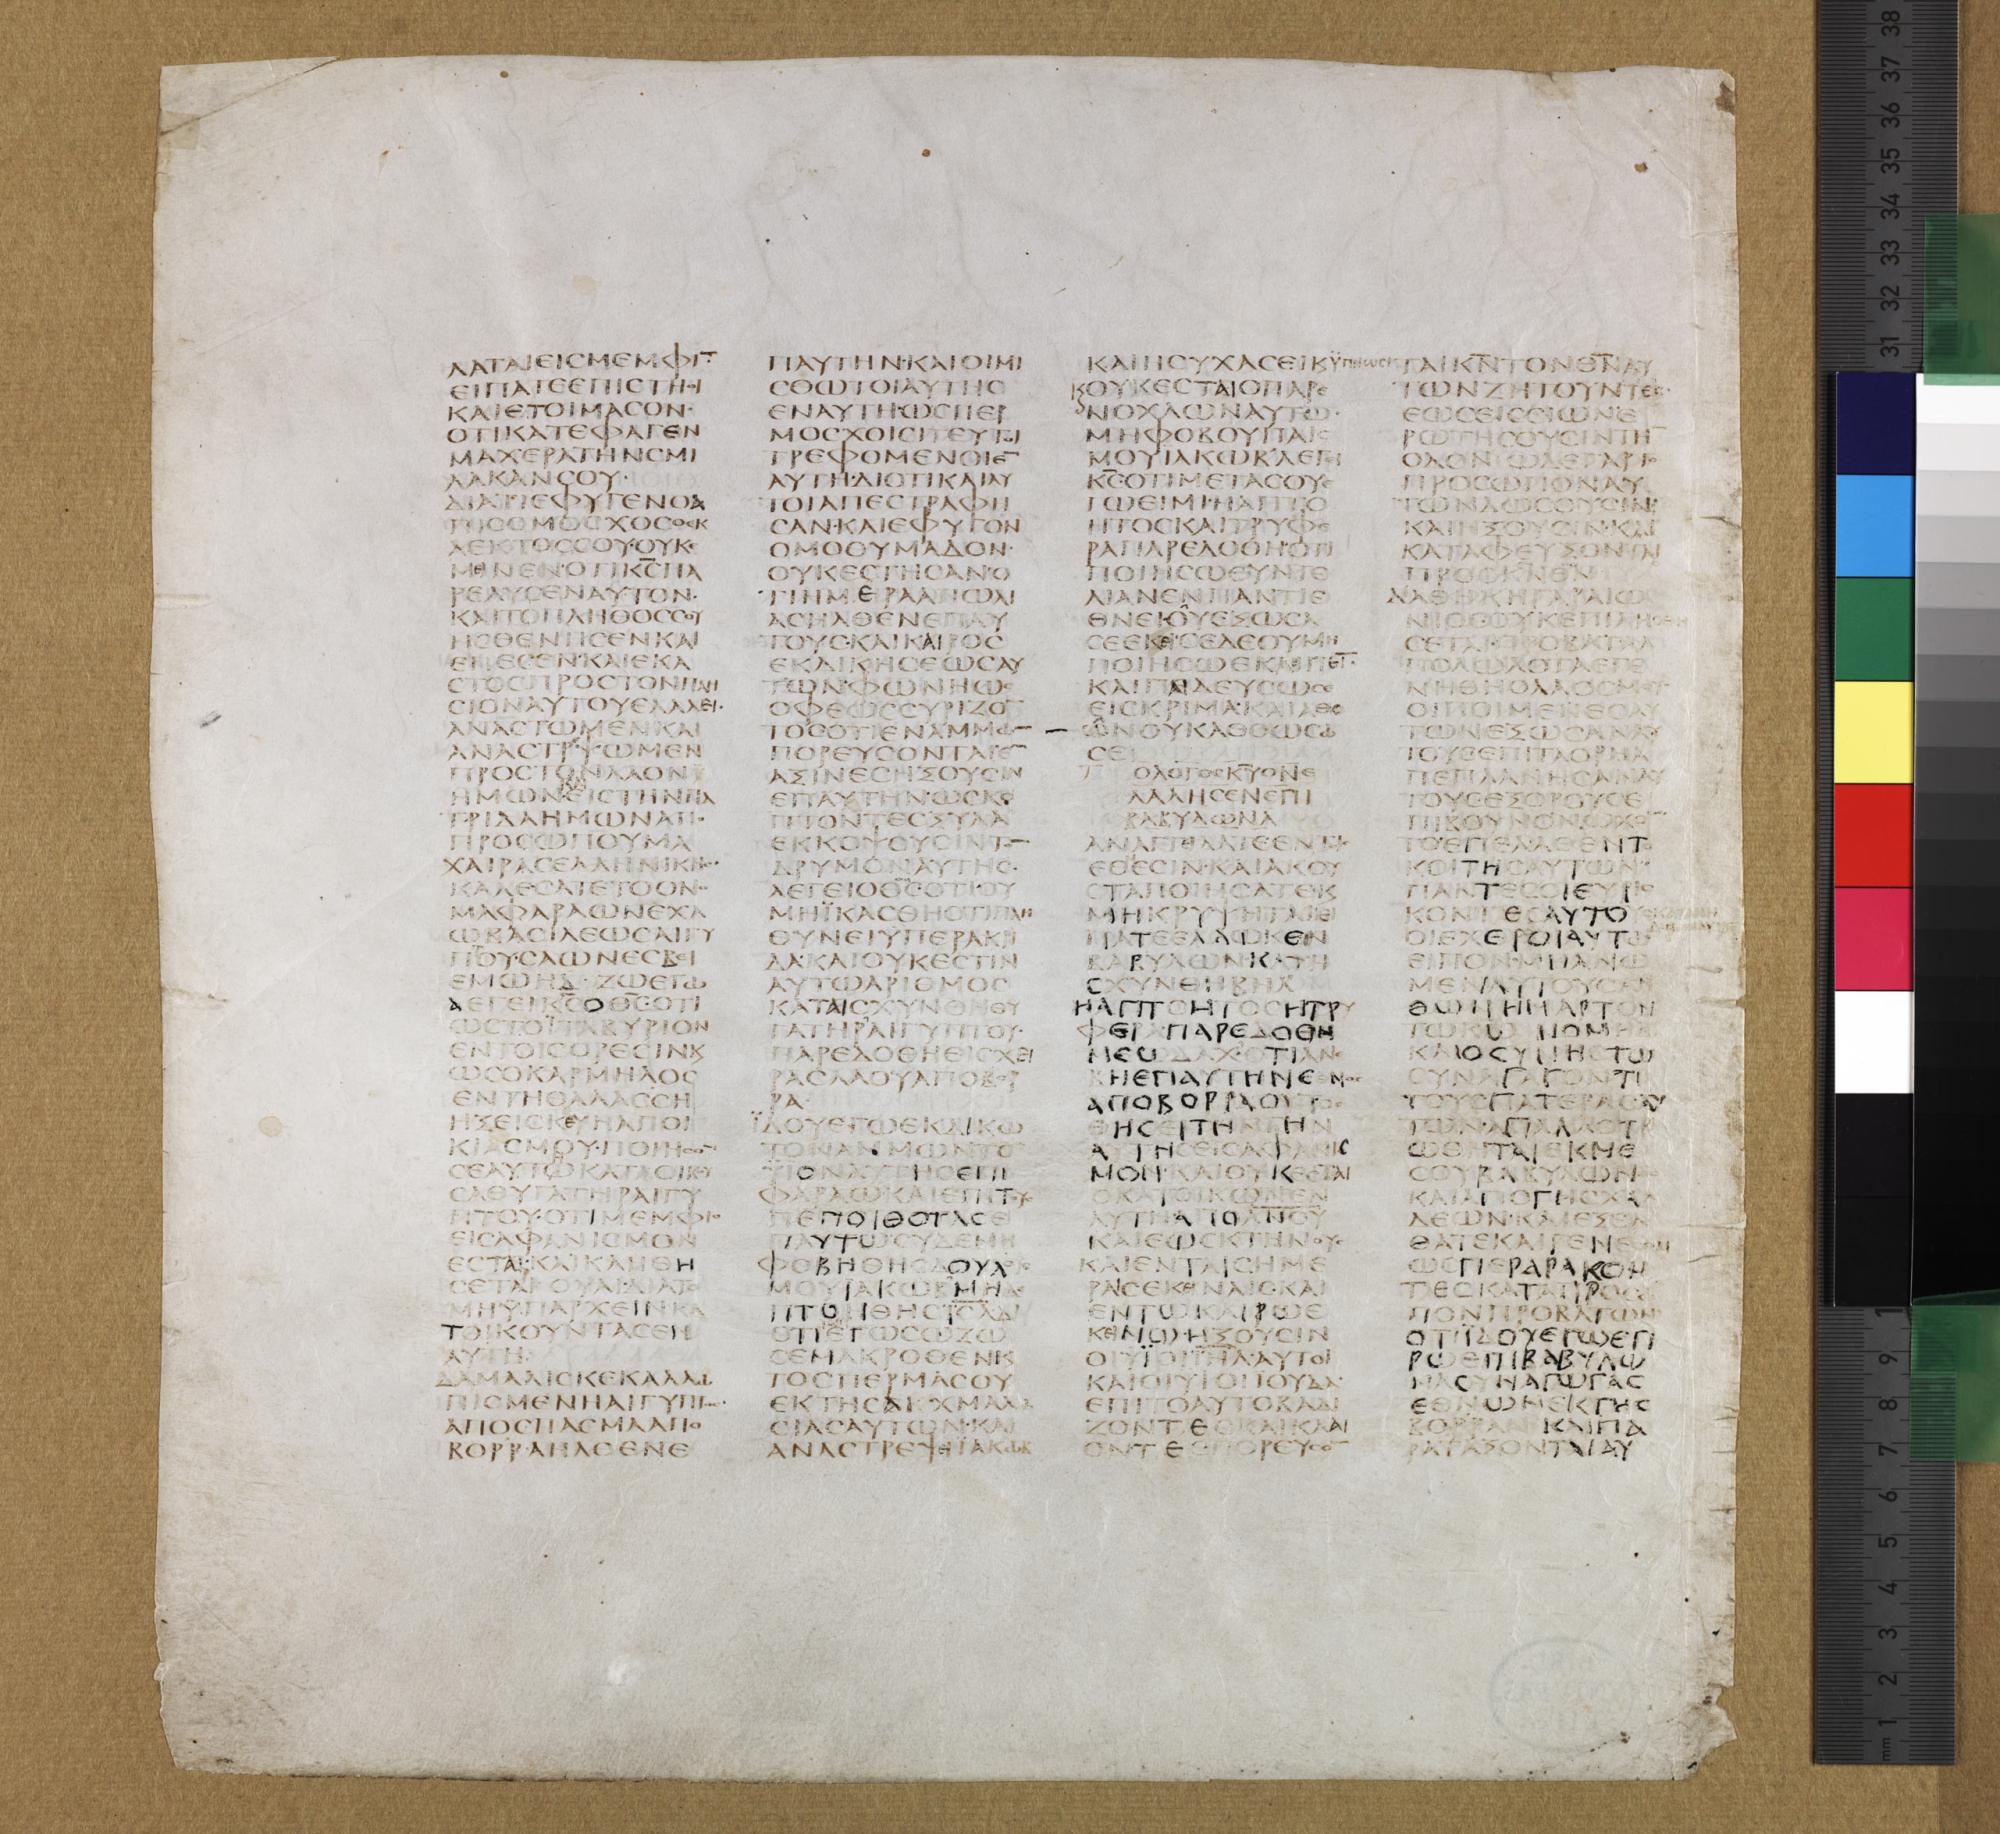 ΛΑΤΑΙΕΙΣΜΕΜΦΙ
ΕΙΠΑΤΕΕΠΙΣΤΗΘΙ
ΚΑΙΕΤΟΙΜΑΣΟΝ·
ΟΤΙΚΑΤΕΦΑΓΕΝ
ΜΑΧΕΡΑΤΗΝΣΜΙ
ΛΑΚΑΝΣΟΥ·
ΔΙΑΤΙΕΦΥΓΕΝΟΑ
ΠΙΣΟΜΟΣΧΟΣΟΕΚ
ΛΕΚΤΟΣΣΟΥ·ΟΥΚΕ
ΜΙΝΕΝ·ΟΤΙΚΣΠΑ
ΡΕΛΥΣΕΝΑΥΤΟΝ·
ΚΑΙΤΟΠΛΗΘΟΣΣΟΥ
ΗΣΘΕΝΗΣΕΝΚΑΙ
ΕΠΕΣΕΝ·ΚΑΙΕΚΑ
ΣΤΟΣΠΡΟΣΤΟΝΠΛΗ
ΣΙΟΝΑΥΤΟΥΕΛΑΛΕΙ·
ΑΝΑΣΤΩΜΕΝΚΑΙ
ΑΝΑΣΤΡΨΩΜΕΝ
ΠΡΟΣΤΟΝΛΑΟΝ
ΗΜΩΝΕΙΣΤΗΝΠΑ
ΤΡΙΔΑΗΜΩΝΑΠΟ
ΠΡΟΣΩΠΟΥΜΑ
ΧΑΙΡΑΣΕΛΛΗΝΙΚΗΣ·
ΚΑΛΕΣΑΤΕΤΟΟΝΟ
ΜΑΦΑΡΑΩΝΕΧΑ
ΩΒΑΣΙΛΕΩΣΑΙΓΥ
ΠΤΟΥ·ΣΑΩΝΕΣΒΕΙ
ΕΜΩΗΔ·ΖΩΕΓΩ
ΛΕΓΕΙΚΣΟΘΣ·ΟΤΙ
ΩΣΤΟΪΤΑΒΥΡΙΟΝ
ΕΝΤΟΙΣΟΡΕΣΙΝΚ
ΩΣΟΚΑΡΜΗΛΟΣ
ΕΝΤΗΘΑΛΑΣΣΗ
ΗΞΕΙΣΚΕΥΗΑΠΟΙ
ΚΙΑΣΜΟΥ·ΠΟΙΗΣΟΝ
ΣΕΑΥΤΩΚΑΤΟΙΚΟΥ
ΣΑΘΥΓΑΤΗΡΑΙΓΥ
ΠΤΟΥ·ΟΤΙΜΕΜΦΙΣ
ΕΙΣΑΦΑΝΙΣΜΟΝ
ΕΣΤΑΙ·ΚΑΙΚΛΗΘΗ
ΣΕΤΑΙΟΥΑΙ·ΔΙΑΤΟ
ΜΗΫΠΑΡΧΕΙΝΚΑ
ΤΟΙΚΟΥΝΤΑΣΕΝ
ΑΥΤΗ·
ΔΑΜΑΛΙΣΚΕΚΑΛΛΩ
ΠΙΣΜΕΝΗΑΙΓΥΠΤΟΣ·
ΑΠΟΣΠΑΣΜΑΑΠΟ
ΒΟΡΡΑΗΛΘΕΝΕ
ΠΑΥΤΗΝ·ΚΑΙΟΙΜΙ
ΣΘΩΤΟΙΑΥΤΗΣ
ΕΝΑΥΤΗ·ΩΣΠΕΡ
ΜΟΣΧΟΙΣΙΤΕΥΤΟΙ
ΤΡΕΦΟΜΕΝΟΙΕΝ
ΑΥΤΗ·ΔΙΟΤΙΚΑΙΑΥ
ΤΟΙΑΠΕΣΤΡΑΦΗ
ΣΑΝ·ΚΑΙΕΦΥΓΟΝ
ΟΜΟΘΥΜΑΔΟΝ·
ΟΥΚΕΣΤΗΣΑΝΟ
ΤΙΗΜΕΡΑΑΠΩΛΙ
ΑΣΗΛΘΕΝΕΠΑΥ
ΤΟΥΣ·ΚΑΙΚΑΙΡΟΣ
ΕΚΔΙΚΗΣΕΩΣΑΥ
ΤΩΝ·ΦΩΝΗΩΣ
ΟΦΕΩΣΣΥΡΙΖΟΝ
ΤΟΣΟΤΙΕΝΑΜΜΩ
ΠΟΡΕΥΣΟΝΤΑΙΕΝ
ΑΞΙΝΕΣΗΞΟΥΣΙΝ
ΕΠΑΥΤΗΝ·ΩΣΚΟ
ΠΤΟΝΤΕΣΞΥΛΑ
ΕΚΚΟΨΟΥΣΙΝΤΟΝ
ΔΡΥΜΟΝΑΥΤΗΣ·
ΛΕΓΕΙΟΘΣ·ΟΤΙΟΥ
ΜΗΪΚΑΣΘΗΟΤΙΠΛΗ
ΘΥΝΕΙΫΠΕΡΑΚΡΙ
ΔΑ·ΚΑΙΟΥΚΕΣΤΙΝ
ΑΥΤΩΑΡΙΘΜΟΣ
ΚΑΤΑΙΣΧΥΝΘΗΘΥ
ΓΑΤΗΡΑΙΓΥΠΤΟΥ·
ΠΑΡΕΔΟΘΗΕΙΣΧΕΙ
ΡΑΣΛΑΟΥΑΠΟΒΟΡ
ΡΑ·
ΪΔΟΥΕΓΩΕΚΔΙΚΩ
ΤΟΝΑΜΜΩΝΤΟ
ΥΙΟΝΑΥΤΗΣΕΠΙ
ΦΑΡΑΩΚΑΙΕΠΙΤΟΥΣ
ΠΕΠΟΙΘΟΤΑΣΕ
ΠΑΥΤΩΣΥΔΕΜΗ
ΦΟΒΗΘΗΣΔΟΥΛΟΣ
ΜΟΥΙΑΚΩΒΜΗΔΕ
ΠΤΟΗΘΗΣΙΣΛ
ΟΤΙΕΓΩΣΩΖΩ
ΣΕΜΑΚΡΟΘΕΝΚ
ΤΟΣΠΕΡΜΑΣΟΥ
ΕΚΤΗΣΑΙΧΜΑΛΩ
ΣΙΑΣΑΥΤΩΝ·ΚΑΙ
ΑΝΑΣΤΡΕΨΕΙΪΑΚΩΒ
ΚΑΙΗΣΥΧΑΣΕΙΚΫΠΝΩΣΕΙ
ΟΥΚΕΣΤΑΙΟΠΑΡΕ
ΝΟΧΛΩΝΑΥΤΩ·
ΜΗΦΟΒΟΥΠΑΙΣ
ΜΟΥΙΑΚΩΒΛΕΓΕΙ
ΚΣΟΤΙΜΕΤΑΣΟΥΕ
ΓΩΕΙΜΙ·ΗΑΠΤΟ
ΗΤΟΣΚΑΙΤΡΥΦΕ
ΡΑΠΑΡΕΔΟΘΗΟΤΙ
ΠΟΙΗΣΩΕΥΝΤΕ
ΛΙΑΝΕΝΠΑΝΤΙΕ
ΘΝΕΙΟΥΕΞΩΣΑ
ΣΕΕΚΕΙΣΕΔΕΟΥΜΗ
ΠΟΙΗΣΩΕΚΛΙΠΕΙΝ·
ΚΑΙΠΑΙΔΕΥΣΩΣΕ
ΕΙΣΚΡΙΜΑ·ΚΑΙΑΘΩ
ΩΝΟΥΚΑΘΟΩΣΩ
ΣΕ
ΟΛΟΓΟΣΚΥΟΝΕ
ΛΑΛΗΣΕΝΕΠΙ
ΒΑΒΥΛΩΝΑ
ΑΝΑΓΓΕΙΛΑΤΕΕΝΤΟΙΣ
ΕΘΕΣΙΝ·ΚΑΙΑΚΟΥ
ΣΤΑΠΟΙΗΣΑΤΕΚ
ΜΗΚΡΥΨΗΤΑΙΕΙ
ΠΑΤΕΕΑΛΩΚΕΝ
ΒΑΒΥΛΩΝ·ΚΑΤΗ
ΣΧΥΝΘΗΒΗΛ
ΗΑΠΤΟΗΤΟΣΗΤΡΥ
ΦΕΡΑΠΑΡΕΔΟΘΗ
ΜΕΩΔΑΧ·ΟΤΙΑΝΕ
ΒΗΕΠΑΥΤΗΝΕΘΝΟΣ
ΑΠΟΒΟΡΡΑΟΥΤΟΣ
ΘΗΣΕΙΤΗΝΓΗΝ
ΑΥΤΗΣΕΙΣΑΦΑΝΙΣ
ΜΟΝ·ΚΑΙΟΥΚΕΣΤΑΙ
ΟΚΑΤΟΙΚΩΝΕΝ
ΑΥΤΗΑΠΟΑΝΟΥ
ΚΑΙΕΩΣΚΤΗΝΟΥΣ
ΚΑΙΕΝΤΑΙΣΗΜΕ
ΡΑΙΣΕΚΕΙΝΑΙΣΚΑΙ
ΕΝΤΩΚΑΙΡΩΕ
ΚΕΙΝΩ·ΗΞΟΥΣΙΝ
ΟΙΥΪΟΙΙΗΛ·ΑΥΤΟΙ
ΚΑΙΟΙΥΙΟΙΙΟΥΔΑ
ΕΠΙΤΟΑΥΤΟΒΑΔΙ
ΖΟΝΤΕΣΚΑΙΚΛΑΙ
ΟΝΤΕΣΠΟΡΕΥΣΟΝ
ΤΑΙΚΝΤΟΝΘΝΑΥ
ΤΩΝΖΗΤΟΥΝΤΕΣ·
ΕΩΣΕΙΣΣΙΩΝΕ
ΡΩΤΗΣΟΥΣΙΝΤΗΝ
ΟΔΟΝ·ΩΔΕΓΑΡΤΟ
ΠΡΟΣΩΠΟΝΑΥ
ΤΩΝΔΩΣΟΥΣΙΝ·
ΚΑΙΗΞΟΥΣΙΝ·ΚΑΙ
ΚΑΤΑΦΕΥΞΟΝΤΑΙ
ΠΡΟΣΚΝΘΝ
ΔΙΑΘΗΚΗΓΑΡΑΙΩ
ΝΙΟΣΟΥΚΕΠΙΛΗΣΘΗ
ΣΕΤΑΙ·ΠΡΟΒΑΤΑΑ
ΠΟΛΩΛΟΤΑΕΓΕ
ΝΗΘΗΟΛΑΟΣΜΟΥ·
ΟΙΠΟΙΜΕΝΕΣΑΥ
ΤΩΝΕΞΩΣΑΝΑΥ
ΤΟΥΣΕΠΙΤΑΟΡΗΑ
ΠΕΠΛΑΝΗΣΑΝΑΥ
ΤΟΥΣΕΞΟΡΟΥΣΕ
ΠΙΒΟΥΝΟΝΩΧΟΝ
ΤΟΕΠΕΛΑΘΕΝΤΟ
ΚΟΙΤΗΣΑΥΤΩΝ·
ΠΑΝΤΕΣΟΙΕΥΡΙΣ
ΚΟΝΤΕΣΑΥΤΟΥΣ
ΟΙΕΧΘΡΟΙΑΥΤΩ
ΕΙΠΟΝ·ΜΗΑΝΩ
ΜΕΝΑΥΤΟΥΣΑΝ
ΘΩΝΗΜΑΡΤΟΝ
ΤΩΚΩΝΟΜΗ
ΔΙΚΑΙΟΣΥΝΗΣΤΩ
ΣΥΝΑΓΑΓΟΝΤΙ
ΤΟΥΣΠΑΤΕΡΑΣΑΥ
ΤΩΝ·ΑΠΑΛΛΟΤΡΙ
ΩΘΗΤΑΙΕΚΜΕ
ΣΟΥΒΑΒΥΛΩΝ·
ΚΑΙΑΠΟΓΗΣΧΑΛ
ΔΕΩΝ·ΚΑΙΕΞΕΛ
ΘΑΤΕΚΑΙΓΕΝΕΣΘΑΙ
ΩΣΠΕΡΔΡΑΚΟΝ
ΤΕΣΚΑΤΑΠΡΟΣΩ
ΠΟΝΠΡΟΒΑΤΩΝ
ΟΤΙΪΔΟΥΕΓΩΕΓΙ
ΡΩΕΠΙΒΑΒΥΛΩ
ΝΑΣΥΝΑΓΩΓΑΣ
ΕΘΝΩΝΕΚΓΗΣ
ΒΟΡΡΑΝΚΑΙΠΑ
ΡΑΤΑΞΟΝΤΑΙΑΥ